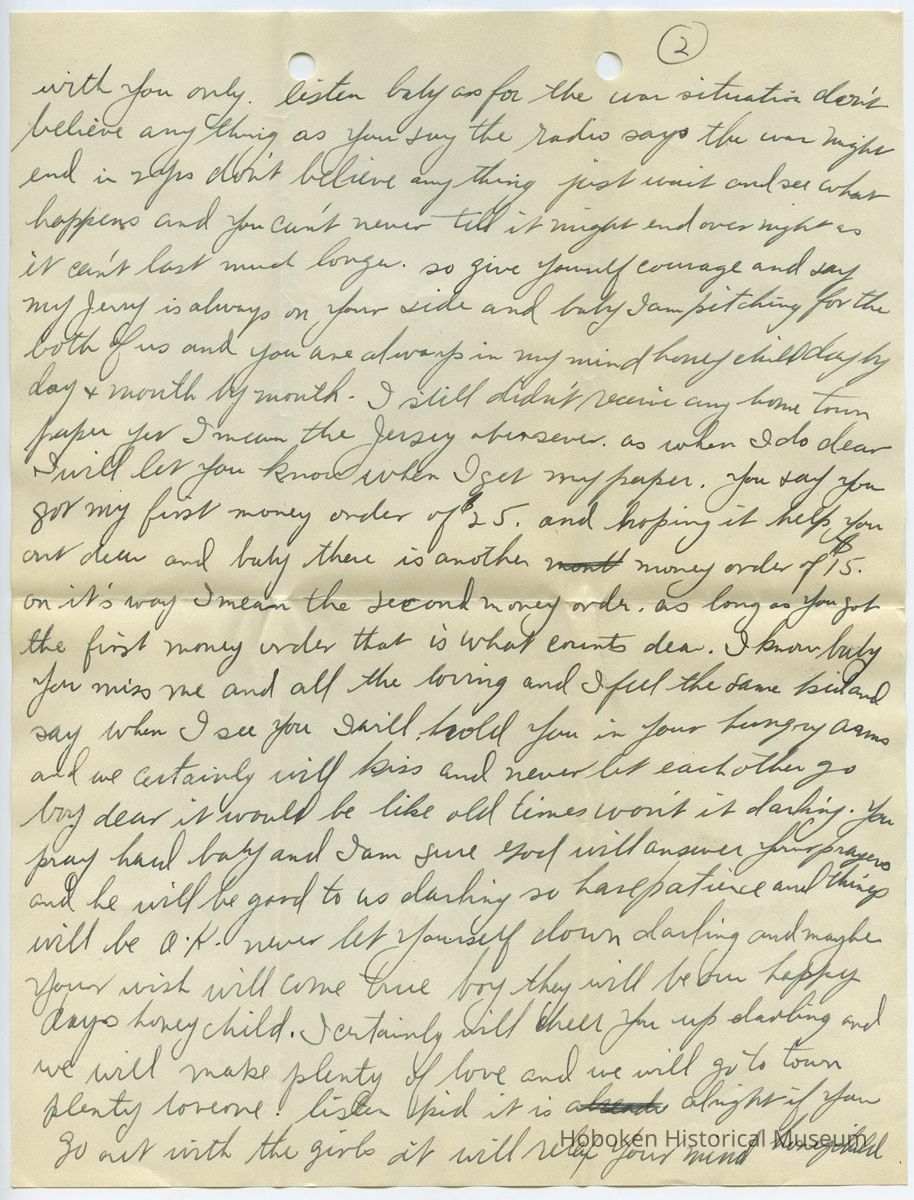 2
with You only. listen baby as for the war situation don't
believe anything as you say the radio says the war might
end in days don't believe anything just wait and see what
happens and you can't never till it might end over night as
it can't last much longer. so give yourself courage and say
my Jerry is always on your side and baby I am pitching for the
both of us and you are always in my mind honey child day by
day & month by month. I still didn't receive any home town
paper yet I mean the Jersey obersever. as when I do dear
I will let you know when I get my paper. you say you
got my first money order of $25. and hoping it help you
out dear and baby there is another money order of $15.
on it's way I mean the second money order. as long as you got
the first money order that is what counts dear. I know baby
you miss me and all the loving and I feel the same kid and
say when I see you I will hold you in your hungry arms
and we certainly will kiss and never let each other go
boy dear it would be like old times won't it darling. You
pray hard baby and I am sure God will answer your prayers
and he will be good to us darling so have patience and things
will be O.K. never let yourself down darling and maybe
your wish will come true boy they will be our happy
days honey child. I certainly will cheer you up darling and
we will make plenty of love and we will go to town
plenty loveone. listen kid it is alright if you
go out with the girls it will relax your mind honeychild.
Hoboken Historical Museum